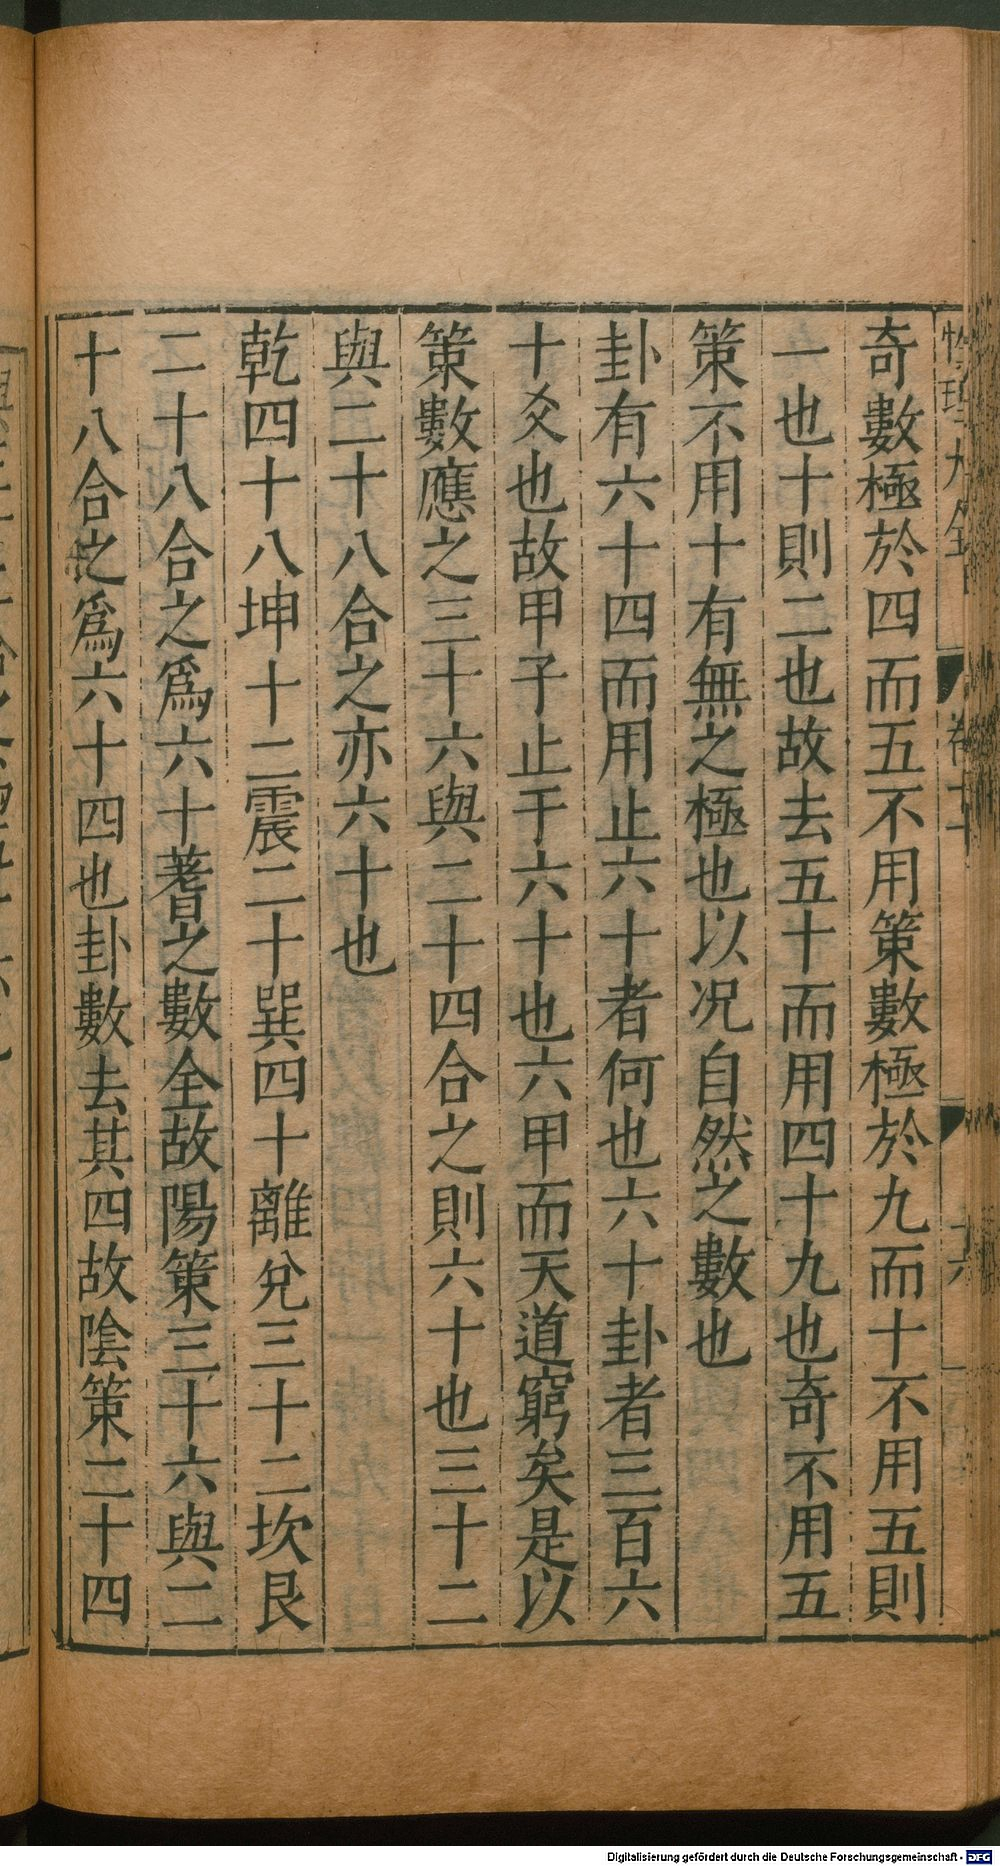 奇數極於四而五不用策數極於九而十不用五則
一也十則二也故去五十而用四十九也奇不用五
策不用十有無之極也以况自然之數也
卦有六十四而用止六十者何也六十卦者三百六
十爻也故甲子止于六十也六甲而天道窮矣是以
策數應之三十六與二十四合之則六十也三十二
與二十八合之亦六十也
乾四十八坤十二震二十巽四十離兌三十二坎艮
二十八合之爲六十蓍之數全故陽策三十六與二
十八合之爲六十四也卦數去其四故陰策二十四
Digitalisierung gefördert durch die Deutsche Forschungsgemeinschaft - DFG